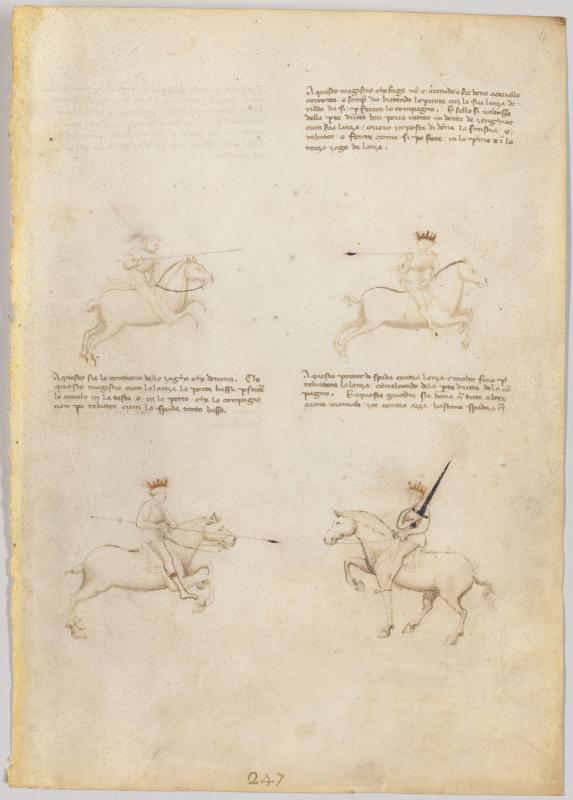 4
A questo magistro che fuge nō e armado e sie bene a cavallo
corrente e semp va butando le punte cum la sua lanza de
riedo da si p ferire lo compagno. E sello si voltasse
della pte dritta ben poria intrar in dente de zenghiar
cum sua lanza overo in posta di dōna la senestra e
rebater e ferire como si po fare in lo pimo e i lo
terzo zogo de lanza.
A questo sie lo contrario dello zogho che denanci. Che
questo magistro cum la lanza la porta bassa p ferir
lo cavalo in la testa o in lo petto che lo compagno
non po rebater cum la spada tanto basso.
A questo portar de spada contra lanza e molto fino p
rebatere la lanza cavalcando de la pte dritta del
pagno. E aquesta guardia sie bona tute altre
arme manuale zoe contra azza bastone spada
247